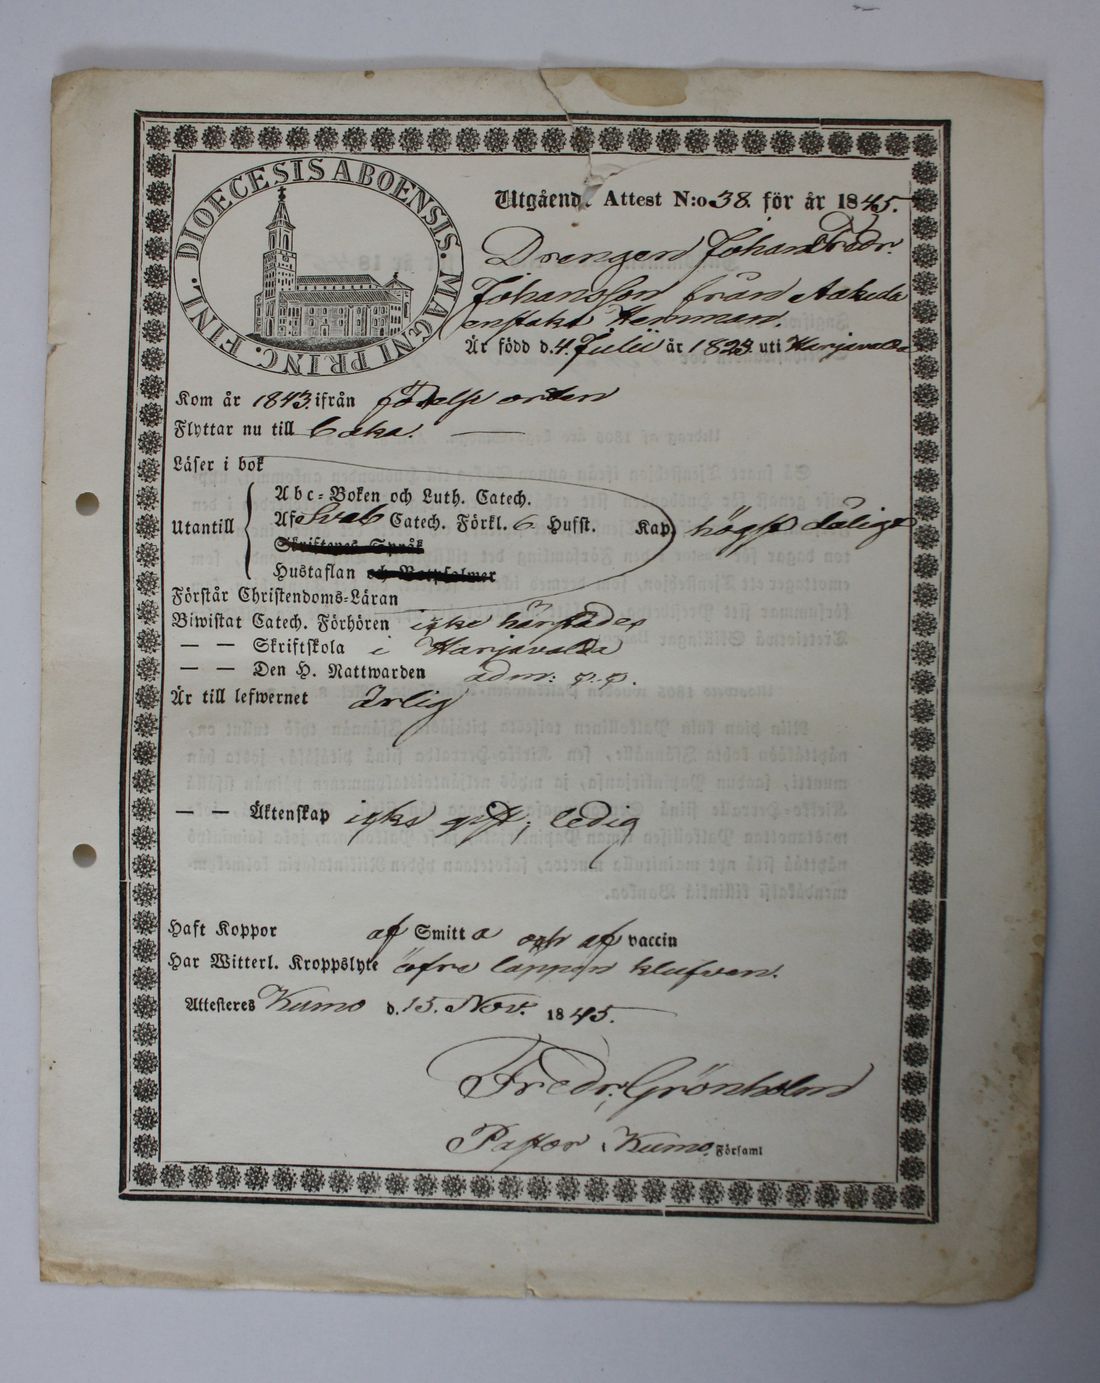 DIOECESIS ABOENSIS. MAGNI PRINC. FINL.
Utgående Attest N:o 38. för år 1845.
Drengen Johan Fredr.
Johansson från
enstaka Hemman.
Är född d. 4. Julii år 1823. uti Harjavalda
Kom år 1843. ifrån födelse orten
Flyttar nu till
Läser i bok
Utantill
Abc-Boken och Luth. Catech.
Af Sveb Catech. Förkl. 6 Hufst. Kap högst dåligt
Skriftenes Språk
Hustaflan och Botpsalmer
Förstår Christendoms-Läran
Biwistat Catech. Förhören icke härstädes
— — Skriftskola i Harjavalda
— — Den H. Nattwarden adm:
Är till lefwernet ärlig
— — Äktenskap icke gift, ledig
Haft Koppor af Smitta och af vaccin
Har Witterl. Kroppslyte öfre läppen klufven.
Attesteres Kumo d. 15. Nov. 1845.
Fredr. Grönholm
Pastor i Kumo Församl